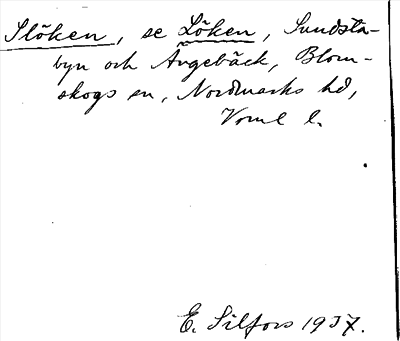 Slöken, se Löken, Sundsta-
byn och Ängebäck, Blom-
skogs sn, Nordmarks hd,
Vrml l.
E. Silfors 1937.